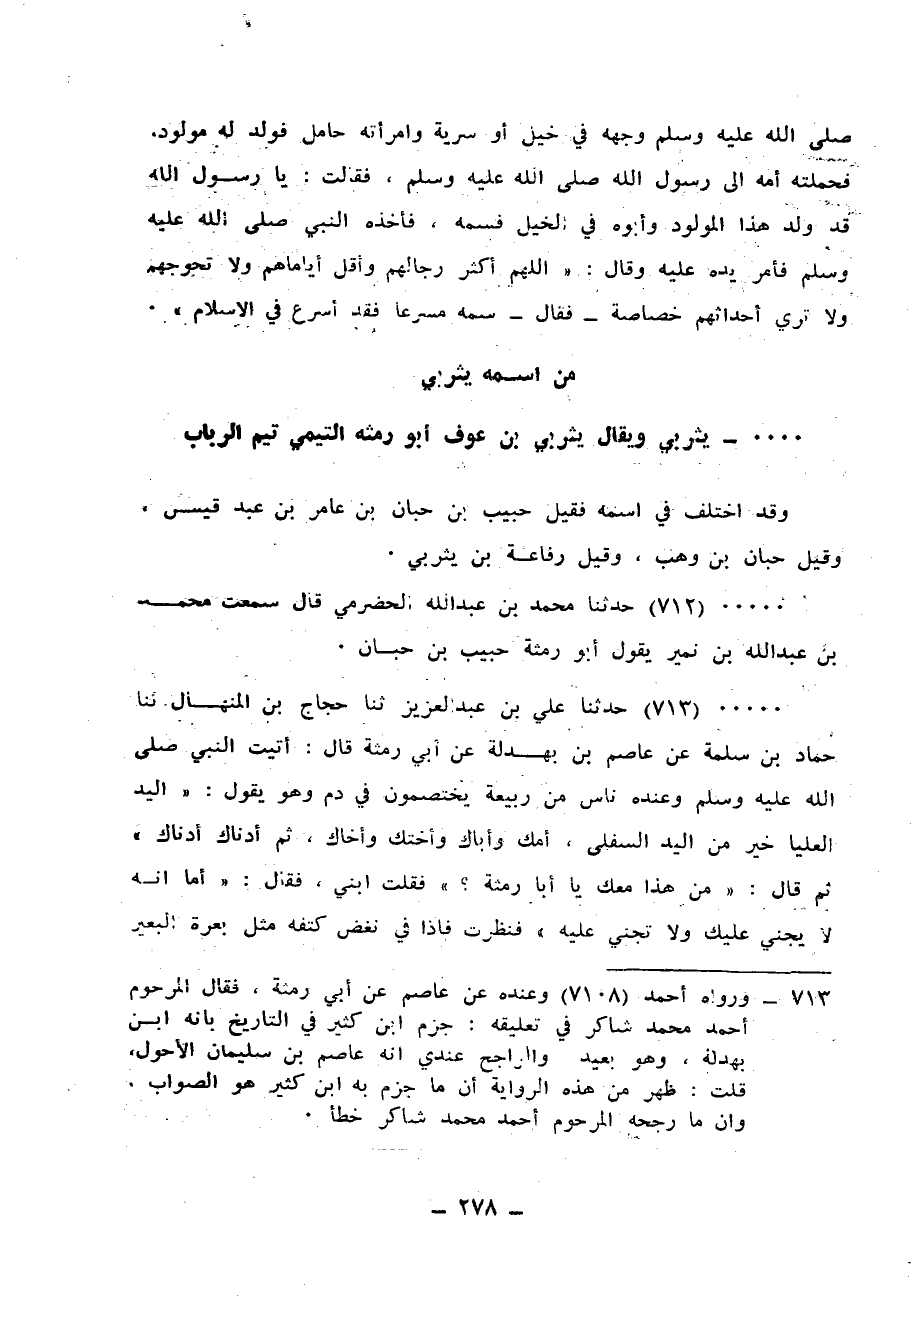 صلى الله عليه وسلم وجهه في خيل أو سرية وامرأته حامل فولد له مولود،
فحملته أمه الى رسول الله صلى الله عليه وسلم ، فقالت : يا رسول الله
قد ولد هذا المولود وأبوه في الخيل فسمه ، فأخذه النبي صلى الله عليه
وسلم فأمر يده عليه وقال : « اللهم أكثر رجالهم وأقل أياماهم ولا تحوجهم
ولا تري أحداثهم خصاصة ـ فقال ـ سمه مسرعا فقد أسرع في الاسلام » ٠
من اسمه يثربي
٠٠٠٠ ـ يثربي ويقال يثربي بن عوف أبو رمثه التيمي تيم الرباب
وقد اختلف في اسمه فقيل حبيب بن حبان بن عامر بن عبد قيس ،
وقيل حبان بن وهب ، وقيل رفاعة بن يثربي ٠
٠٠٠٠٠ (٧١٢) حدثنا محمد بن عبدالله الحضرمي قال سمعت محمد
بن عبدالله بن نمير يقول أبو رمثة حبيب بن حبان ٠
٠٠٠٠٠ (٧١٣) حدثنا علي بن عبدالعزيز ثنا حجاج بن المنهال ثنا
حماد بن سلمة عن عاصم بن بهدلة عن أبي رمثة قال : أتيت النبي صلى
الله عليه وسلم وعنده ناس من ربيعة يختصمون في دم وهو يقول : « اليد
العليا خير من اليد السفلى ، أمك وأباك وأختك وأخاك ، ثم أدناك أدناك »
ثم قال : « من هذا معك يا أبا رمثة ؟ » فقلت ابني ، فقال : « أما انه
لا يجني عليك ولا تجني عليه » فنظرت فاذا في نغض كتفه مثل بعرة البعير
٧١٣ ـ ورواه أحمد (٧١٠٨) وعنده عن عاصم عن أبي رمثة ، فقال المرحوم
أحمد محمد شاكر في تعليقه : جزم ابن كثير في التاريخ بانه ابن
بهدلة ، وهو بعيد والراجح عندي انه عاصم بن سليمان الأحول،
قلت : ظهر من هذه الرواية أن ما جزم به ابن كثير هو الصواب ،
وان ما رجحه المرحوم أحمد محمد شاكر خطأ ٠
ـ ٢٧٨ ـ